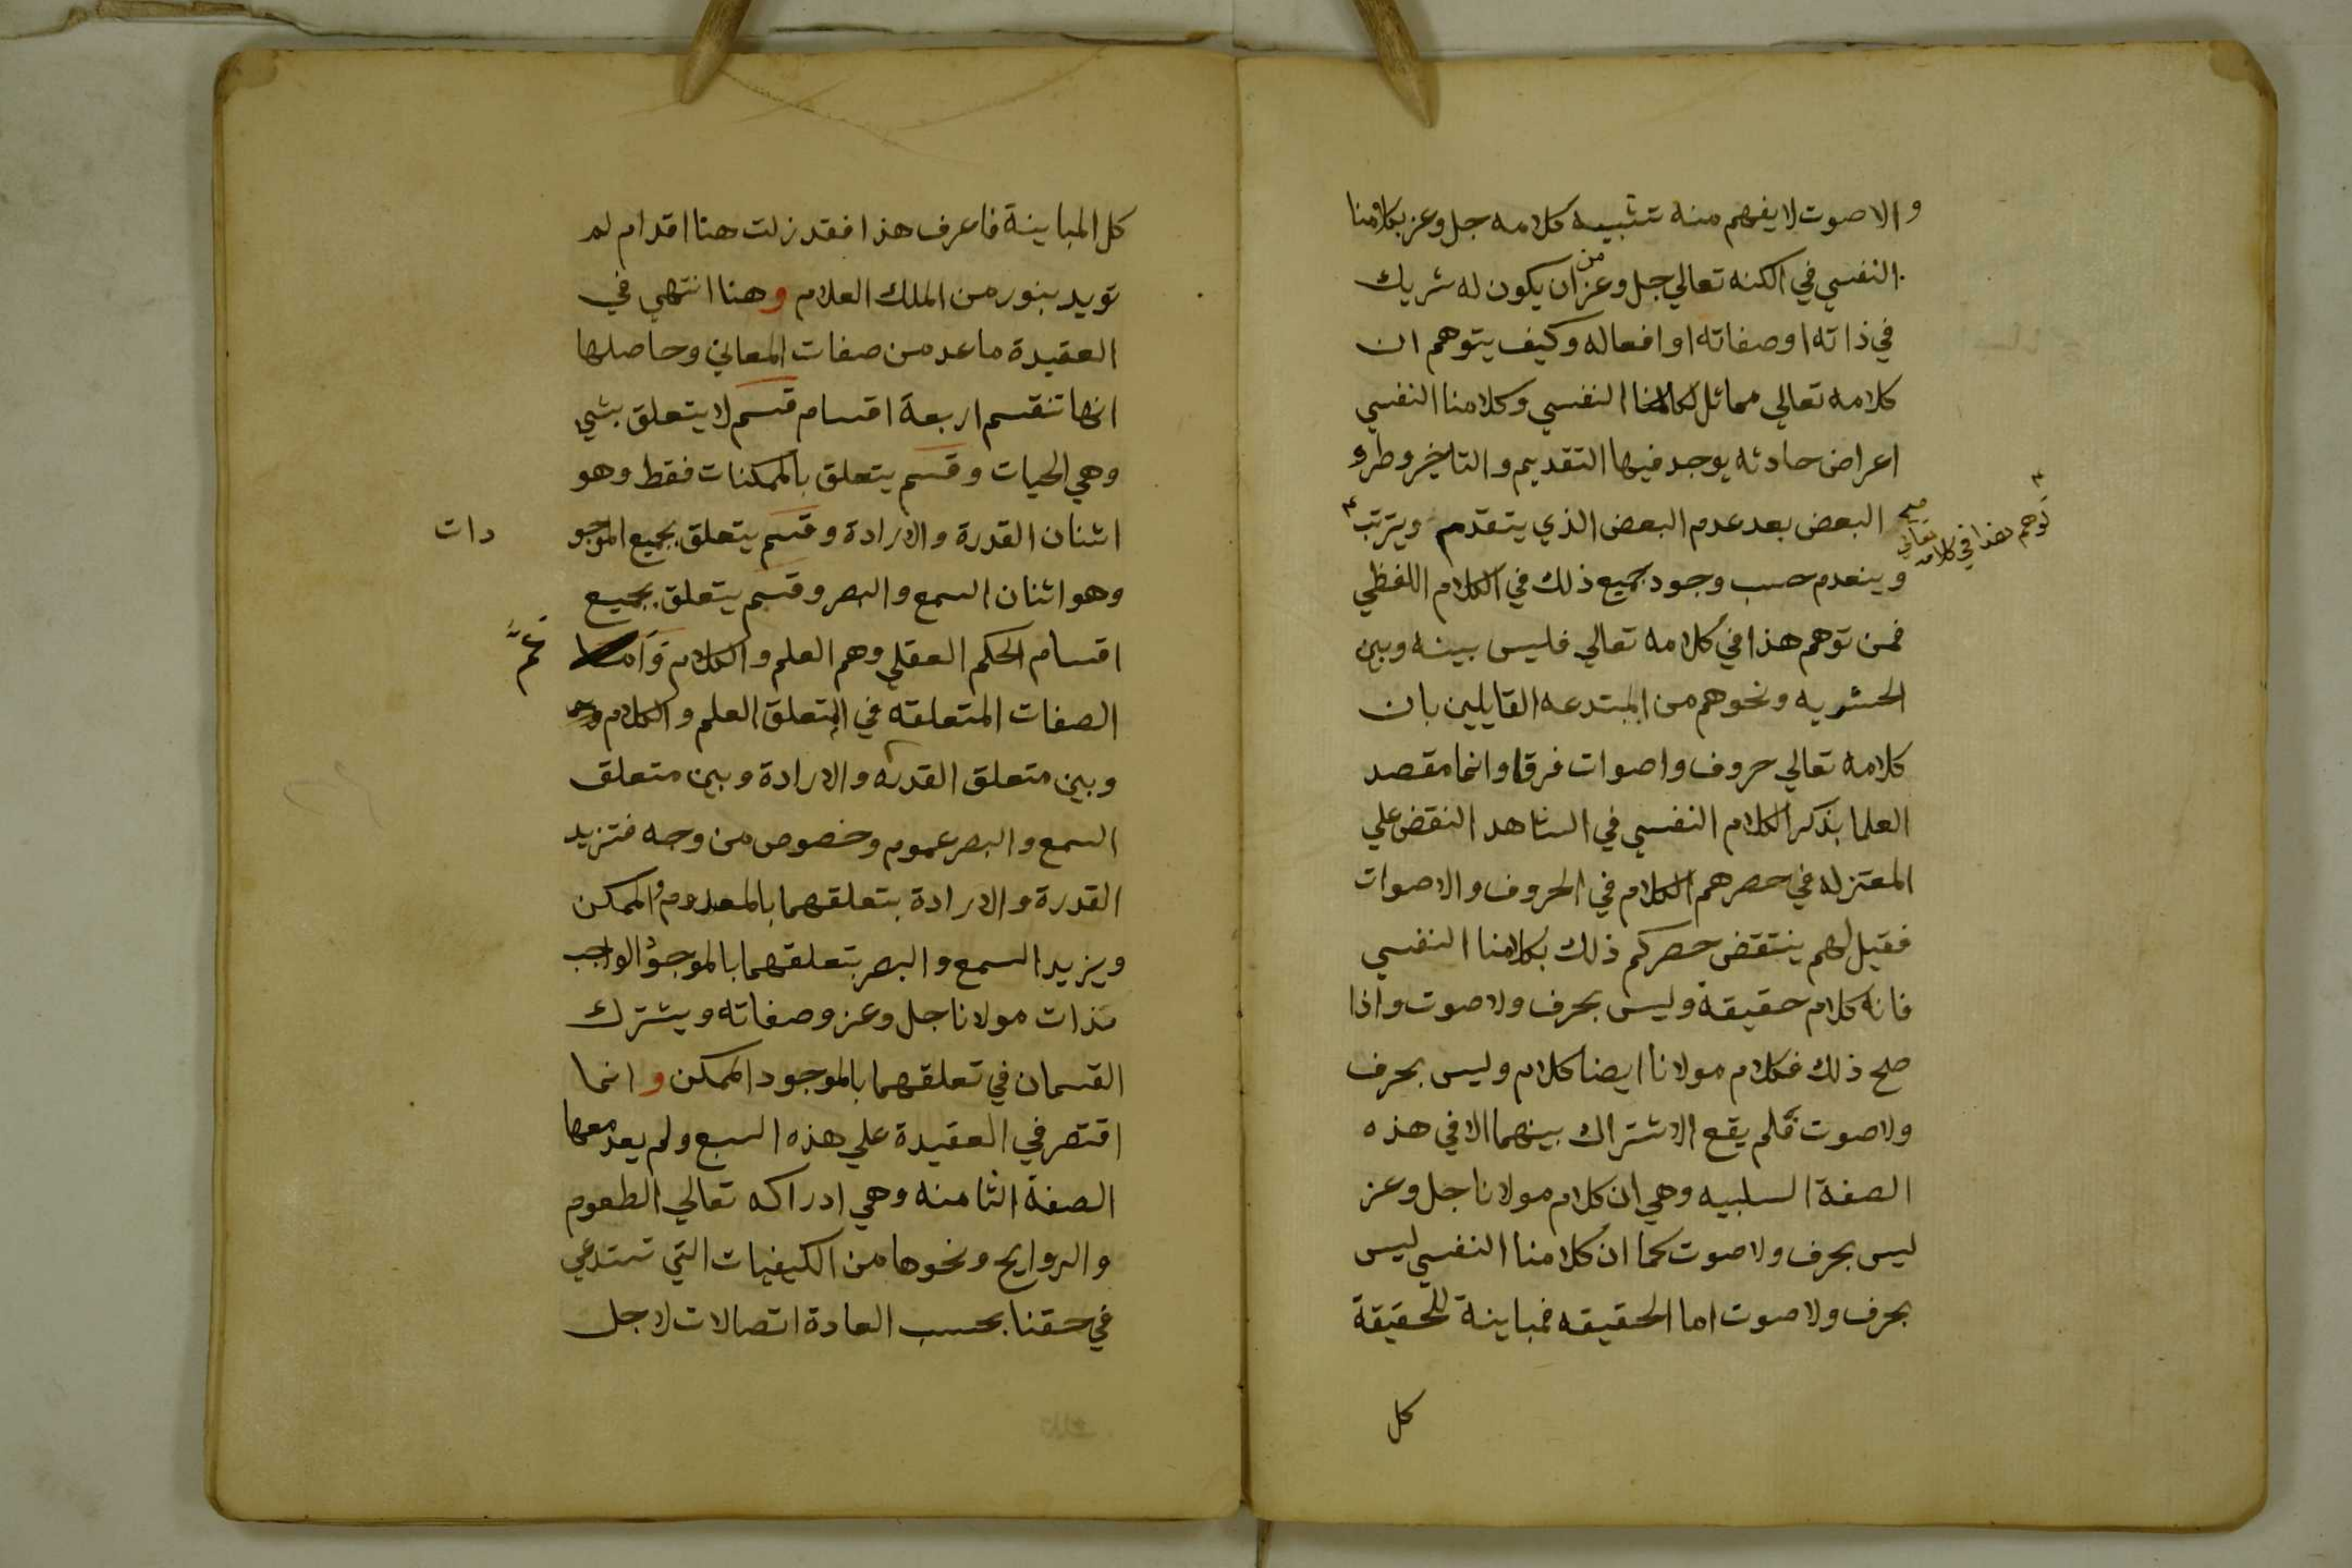 والاصوت لا يفهم منه تشبيه كلامه جل وعز بكلامنا
النفسي في الكنه تعالي جل وعز من ان يكون له شريك
في ذاته او صفاته او افعاله وكيف يتوهم ان
كلامه تعالي مماثل لكلامنا النفسي وكلامنا النفسي
اعراض حادثه يوجد فيها التقديم والتاخير وطرو
البعض بعد عدم البعض الذي يتقدم ويترتب
توهم هذا في كلامه تعالي صح
وينعدم حسب وجود جميع ذلك في الكلام اللفظي
فمن توهم هذا في كلامه تعالي فليس بينه وبين
الحشويه ونحوهم من المبتدعه القايلين بان
كلامه تعالي حروف واصوات فرق وانما مقصد
العلما بذكر الكلام النفسي في الشاهد النقض علي
المعتزله في حصرهم الكلام في الحروف والاصوات
فقيل لهم ينتقض حصركم ذلك بكلامنا النفسي
فانه كلام حقيقة وليس بحرف ولا صوت واذا
صح ذلك فكلام مولانا ايضا كلام وليس بحرف
ولا صوت فلم يقع الاشتراك بينهما الا في هذه
الصفة السلبيه وهي ان كلام مولانا جل وعز
ليس بحرف ولا صوت كما ان كلامنا النفسي ليس
بحرف ولا صوت اما الحقيقه فمباينة للحقيقة
كل
كل المباينة فاعرف هذا فقد زلت هنا اقدام لم
تويد بنور من الملك العلام وهنا انتهي في
العقيدة ما عد من صفات المعاني وحاصلها
انها تنقسم اربعة اقسام قسم لا يتعلق بشي
وهي الحيات وقسم يتعلق بالممكنات فقط وهو
اثنان القدرة والارادة وقسم يتعلق بجميع الموجو دات
وهو اثنان السمع والبصر وقسم يتعلق بجميع
اقسام الحكم العقلي وهم العلم والكلام واما
الصفات المتعلقه في التعلق العلم والكلام
وبين متعلق القدره والارادة وبين متعلق
السمع والبصر عموم وخصوص من وجه فتزيد
القدرة والارادة بتعلقهما بالمعدوم الممكن
ويزيد السمع والبصر بتعلقهما بالموجود الواجب
كذات مولانا جل وعز وصفاته ويشترك
القسمان في تعلقهما بالموجود الممكن وانما
اقتصر في العقيدة علي هذه السبع ولم يعد معها
الصفة الثامنه وهي ادراكه تعالي الطعوم
والروايح ونحوها من الكيفيات التي تستدعي
في حقنا بحسب العادة اتصالات لاجل